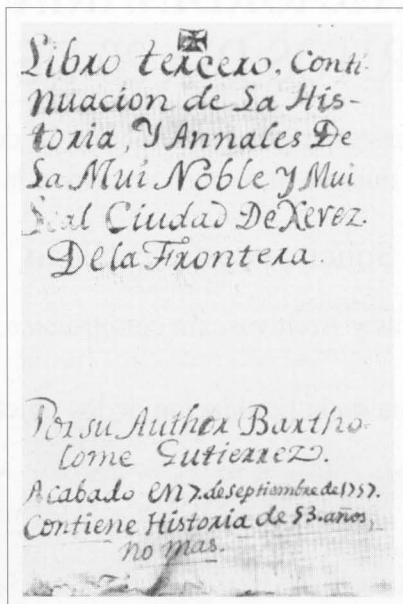 Libro tercero. Conti-
nuacion de La His-
toria, Y Annales De
La Mui Noble y Mui
Leal Ciudad De Xerez.
De la Frontera.
Por su Author Bartho-
lome Gutierrez.
Acabado en 7. de septiembre de 1757.
Contiene Historia de 53. años,
no mas.